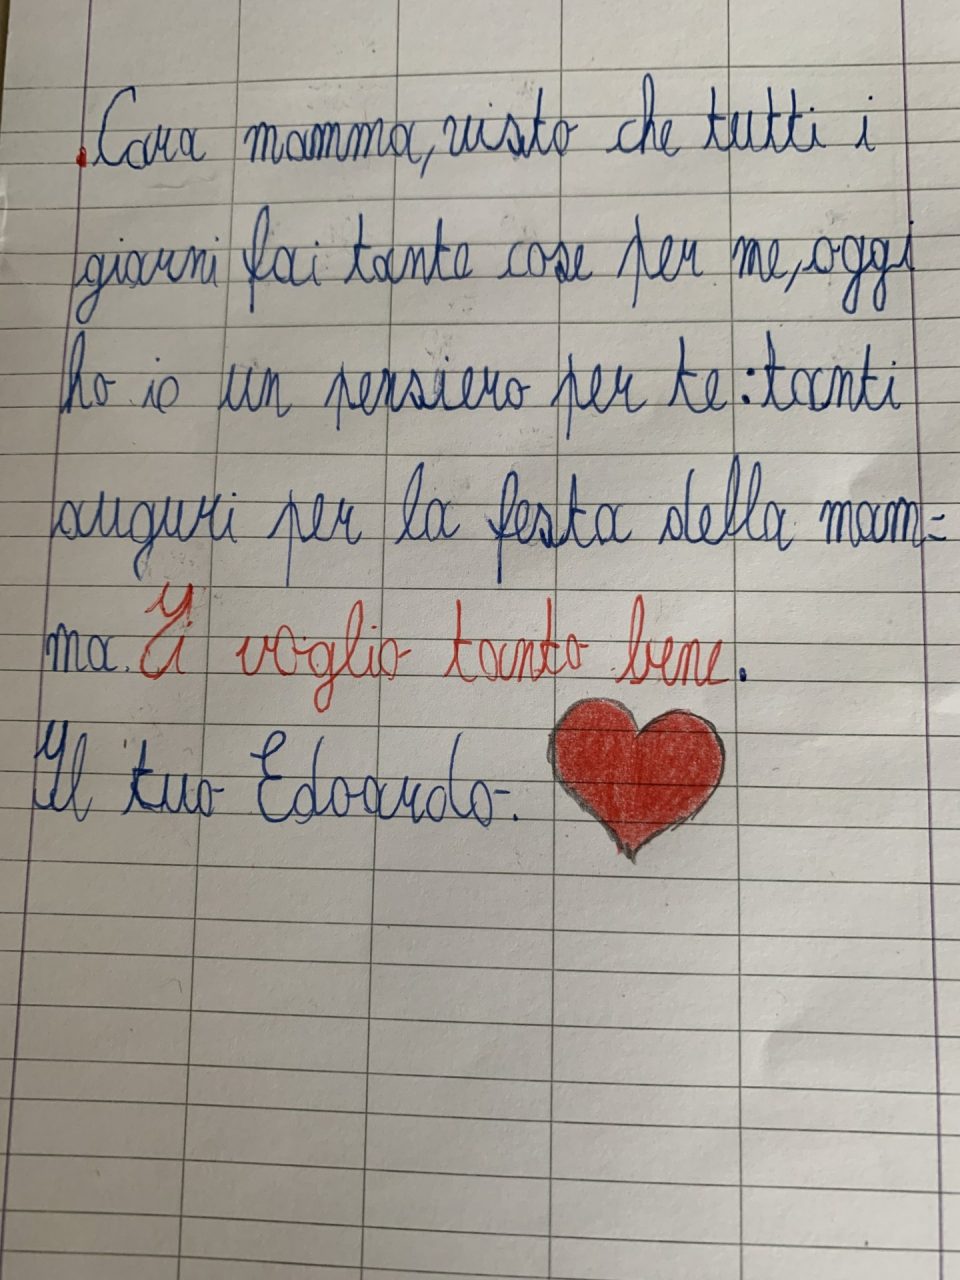 .Cara mamma, visto che tutti i
giorni fai tante cose per me, oggi
ho io un pensiero per te: tanti
auguri per la festa della mam=
ma. Ti voglio tanto bene.
Il tuo Edoardo.